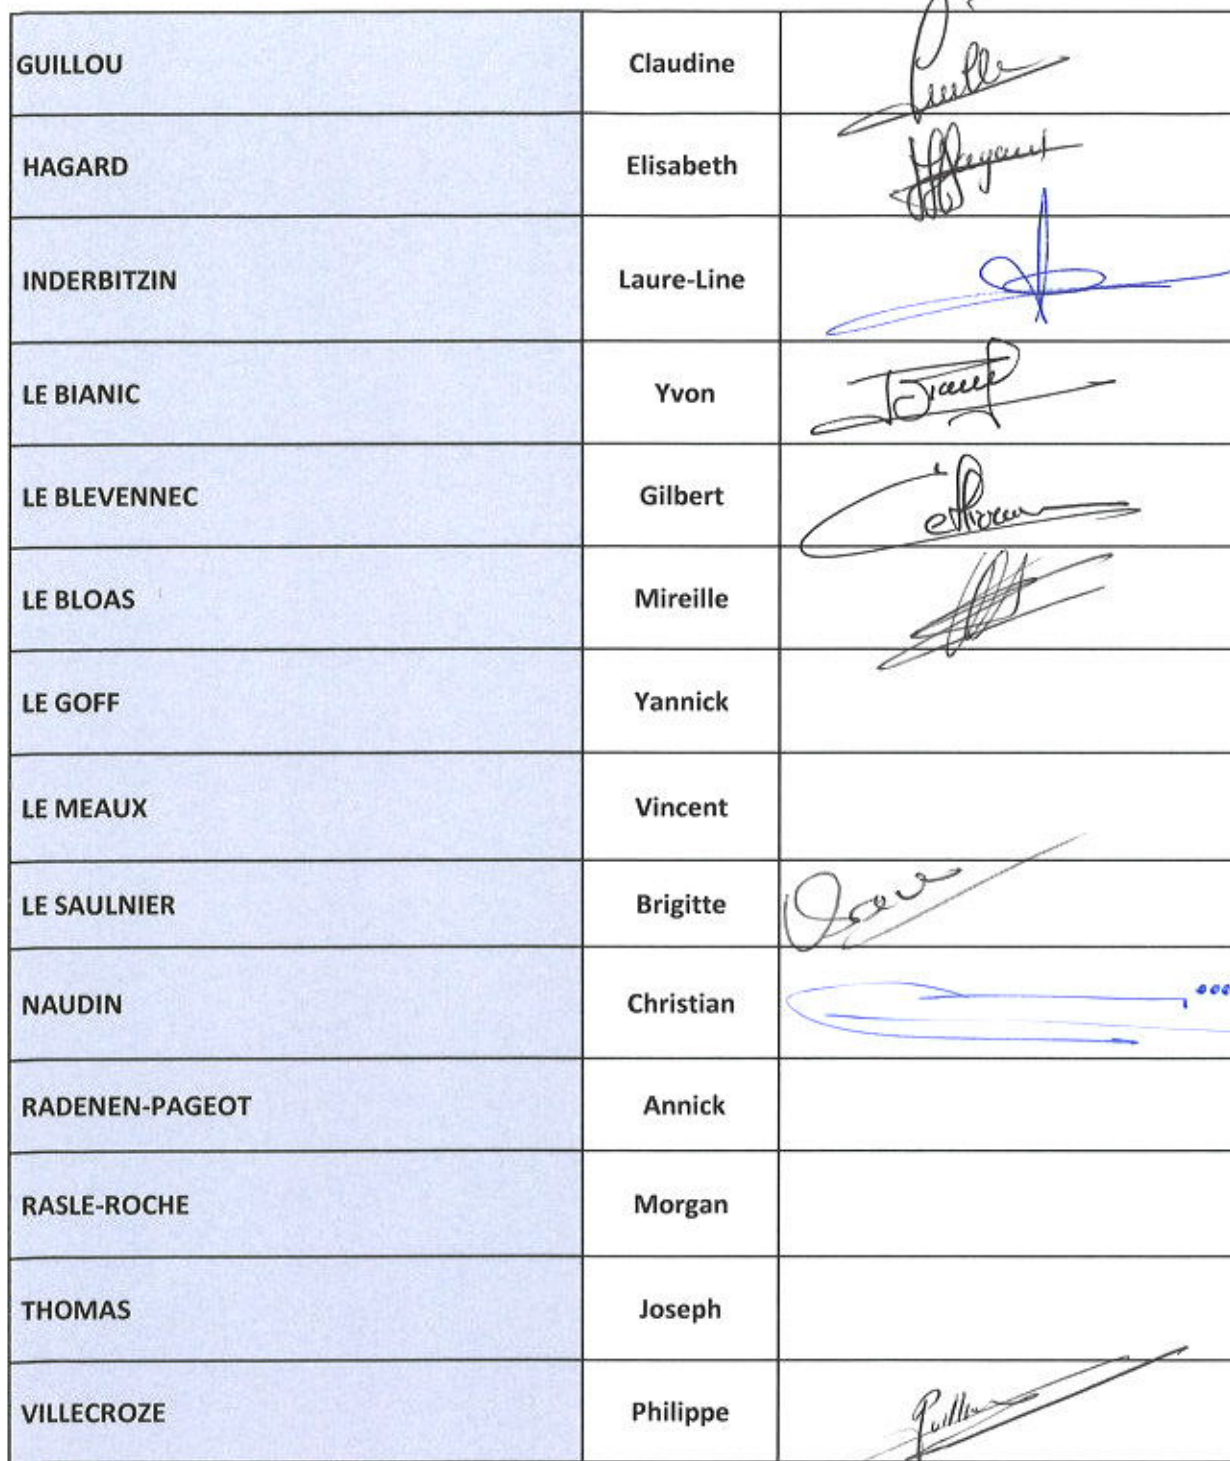 GUILLOU Claudine
HAGARD Elisabeth
INDERBITZIN Laure-Line
LE BIANIC Yvon
LE BLEVENNEC Gilbert
LE BLOAS Mireille
LE GOFF Yannick
LE MEAUX Vincent
LE SAULNIER Brigitte
NAUDIN Christian
RADENEN-PAGEOT Annick
RASLE-ROCHE Morgan
THOMAS Joseph
VILLECROZE Philippe